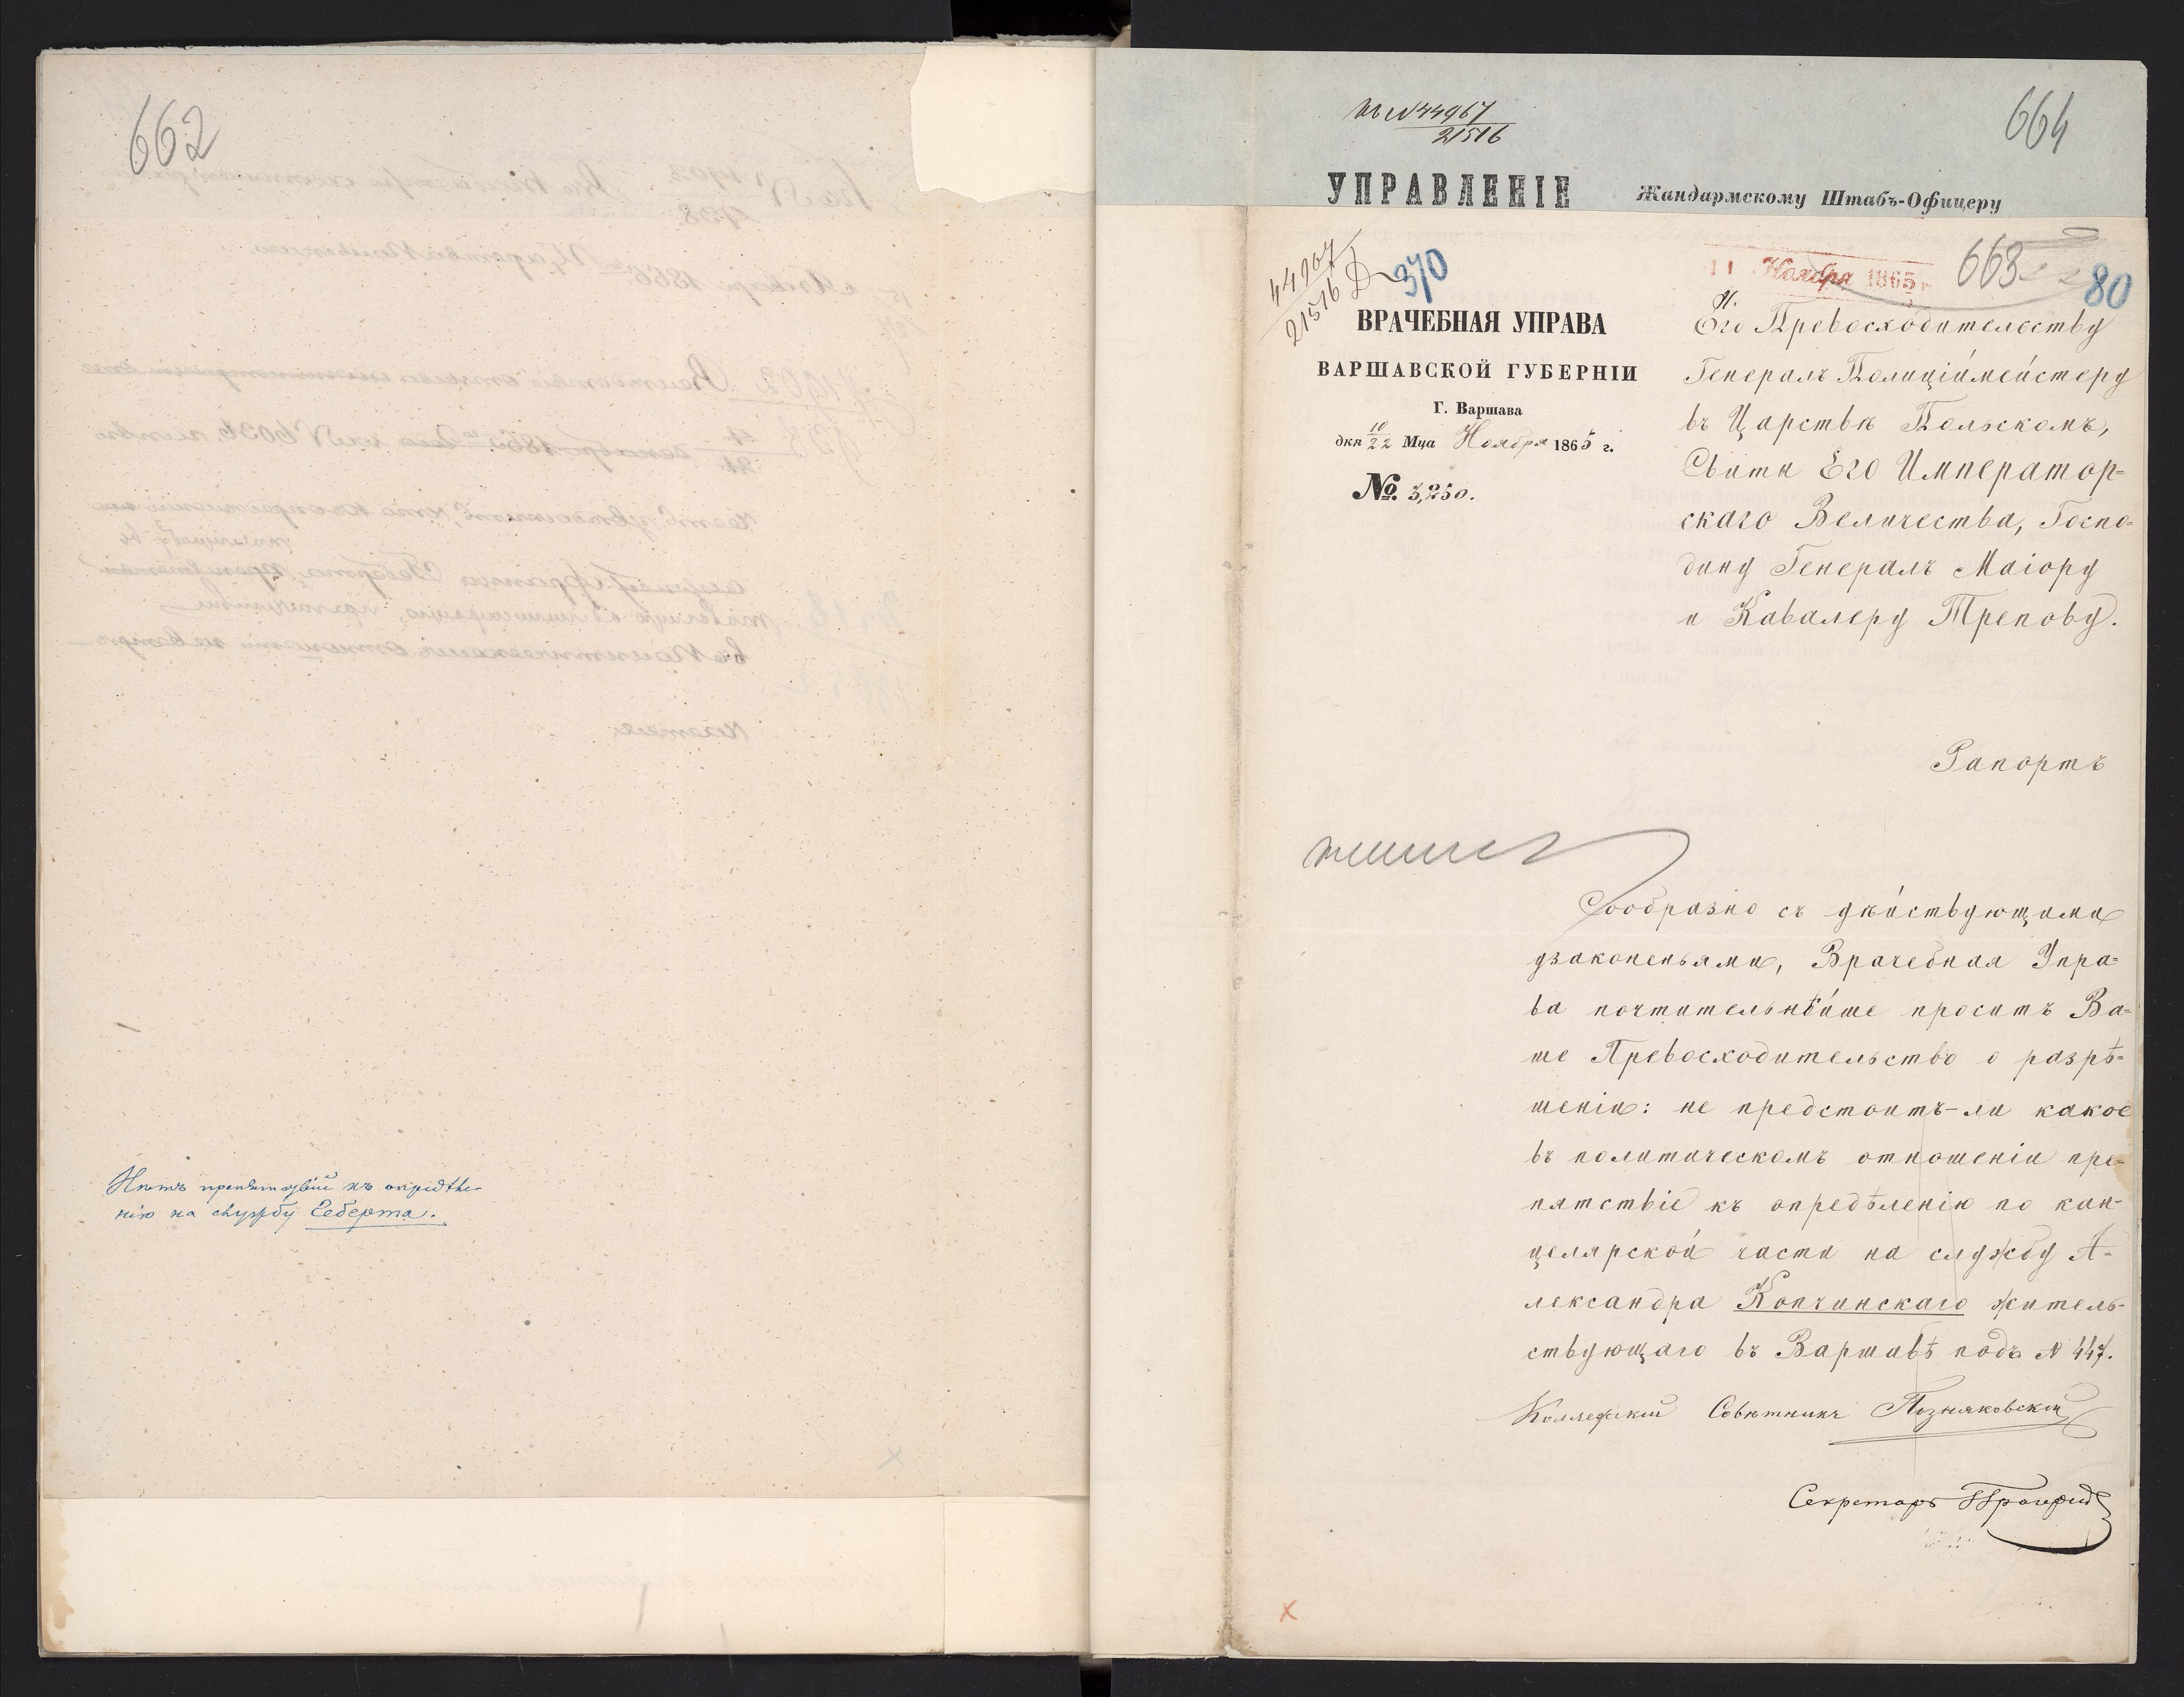 662
Нѣтъ препятствій къ опредѣле-
нію на службу Геберта.
къ № 44967
21516
664
УПРАВЛЕНІЕ
Жандармскому Штабъ-Офицеру
44967
21516
370
11 Ноября 1865 г.
663
80
ВРАЧЕБНАЯ УПРАВА
ВАРШАВСКОЙ ГУБЕРНІИ
Г. Варшава
дня 10/22 Мца Ноября 1865 г.
№ 3,250.
Его Превосходительству
Генералъ Полиціймейстеру
въ Царствѣ Польскомъ,
Свиты Его Император=
скаго Величества, Госпо=
дину Генералъ Маіору
и Кавалеру Трепову.
Рапортъ
Сообразно съ дѣйствующими
узаконеньями, Врачебная Упра=
ва почтительнѣйше проситъ Ва=
ше Превосходительство о разрѣ=
шеніи: не предстоитъ-ли какое
въ политическомъ отношеніи пре-
пятствіе къ опредѣленію по кан-
целярской части на службу А-
лександра Копчинскаго житель-
ствующаго въ Варшавѣ подъ № 447.
Коллежскій Совѣтникъ Позняковскій
Секретарь